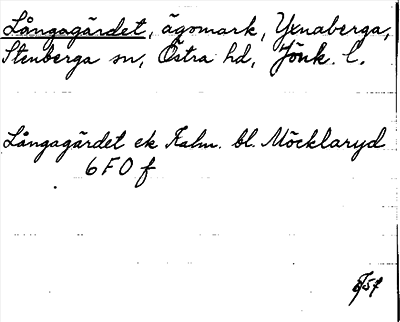 Långagärdet, ägomark, Yxnaberga,
Stenberga sn, Östra hd, Jönk. l.
Långagärdet ek Kalm. bl. Möcklaryd
6 F 0 f